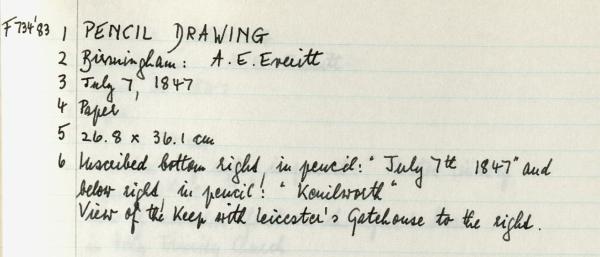 F734'83 1 PENCIL DRAWING
2 Birmingham: A.E. Everitt
3 July 7, 1847
4 Paper
5 26.8 x 36.1 cm
6 Inscribed bottom right, in pencil: "July 7th 1847" and
below right, in pencil: "Kenilworth"
View of the Keep with Leicester's Gatehouse to the right.